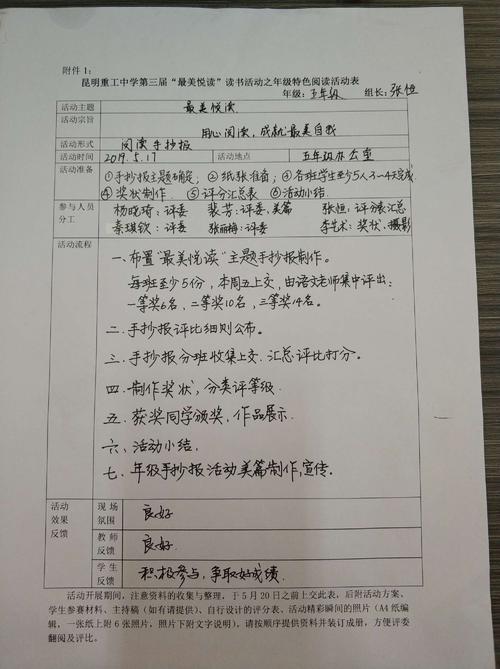 附件 1：
昆明重工中学第三届“最美悦读”读书活动之年级特色阅读活动表
年级：五年级 组长：张恒
活动主题 最美悦读
活动宗旨 用心阅读，成就最美自我
活动形式 阅读手抄报
活动时间 2019.5.17 活动地点 五年级办公室
活动准备 ①手抄报主题确定；②纸张准备；③各班学生至少5人3~4天完成
④奖状制作 ⑤评分汇总表 ⑥活动小结
参与人员 杨晓琦：评委 裴芳：评委、美篇 张恒：评分表汇总
分工 秦琪钦：评委 张丽梅：评委 李艺术：奖状、摄影
活动流程
一、布置“最美悦读”主题手抄报制作。
每班至少5份，本周五上交，由语文老师集中评出：
一等奖6名，二等奖10名，三等奖14名。
二、手抄报评比细则公布。
三、手抄报分班收集上交，汇总评比打分。
四、制作奖状，分类评等级.
五、获奖同学颁奖，作品展示.
六、活动小结.
七、年级手抄报活动美篇制作，宣传.
活动 现场
效果 氛围 良好
反馈 教师
反馈 良好
学生
反馈 积极参与，争取好成绩.
活动开展期间，注意资料的收集与整理，于 5 月 20 日之前上交此表，后附活动方案、
学生参赛材料、主持稿（如有请提供）、自行设计的评分表、活动精彩瞬间的照片（A4 纸编
辑，一张纸上附 6 张照片，照片下附文字说明），请按顺序提供资料并装订成册，方便评委
翻阅及评比。